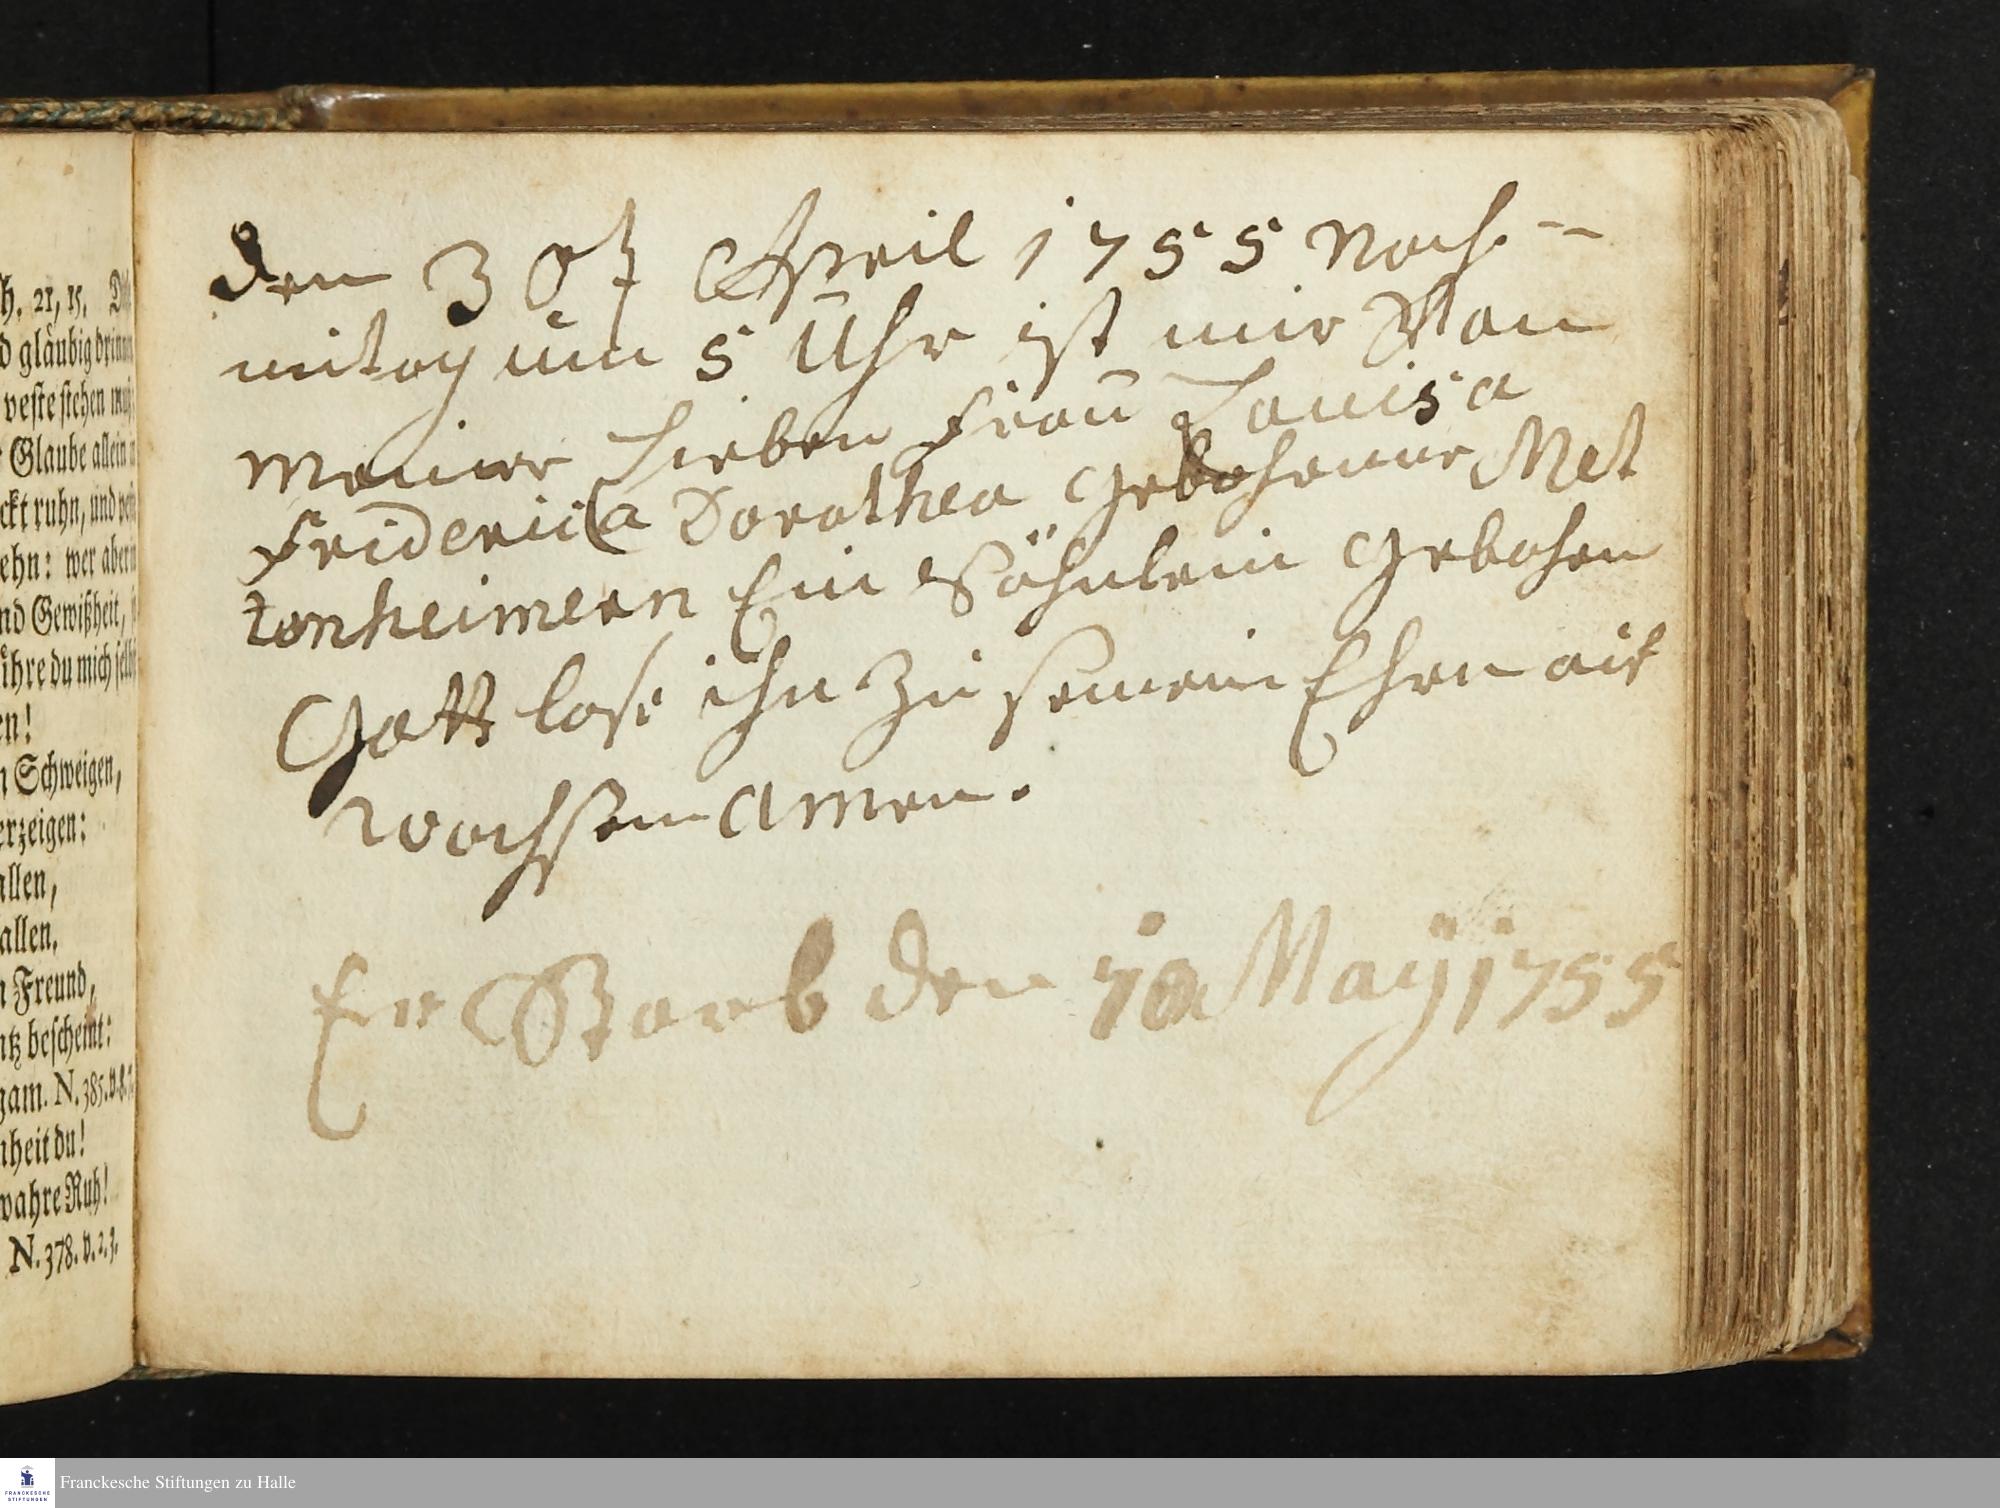 h. 21, 15.
d gläubig dringen
veste stehen muß
Glaube allein
ckt ruhn, und
ehn: wer aber
nd Gewißheit,
ühre du mich selbst
en!
n Schweigen,
erzeigen:
allen,
allen,
n Freund,
ntz bescheint:
gam. N. 385. v.
nheit du!
wahre Ruh!
N. 378. v. 2. 3.
den 30t April 1755 Nach-
mitag um 5 Uhr ist mir Von
Meiner Lieben Frau Louisa
Friderica Dorothea gebohrner Met
tenheimern Ein Söhnlein gebohen
Gott lase ihn zu seinem Ehren auf
wachssen Amen.
Er Starb den 10 Maÿ 1755
Franckesche Stiftungen zu Halle
FRANCKESCHE
STIFTUNGEN